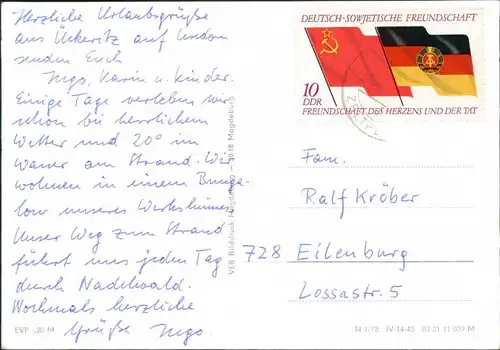 Herzliche Urlaubsgrüße
aus Ückeritz auf Usedom
senden Euch
Ingo, Karin u. Kinder.
Einige Tage verleben wir
schon bei herrlichem
Wetter und 20° im
Wasser am Strand. Wir
wohnen in einem Bunga-
low unseres Werksheimes.
Unser Weg zum Strand
führt uns jeden Tag
durch Nadelwald.
Nochmals herzliche
Grüße Ingo.
EVP -,20 M
VEB Bilddruck Magdeburg – 3018 Magdeburg
DEUTSCH-SOWJETISCHE FREUNDSCHAFT
10
DDR
FREUNDSCHAFT DES HERZENS UND DER TAT
Fam.
Ralf Kröber
728 Eilenburg
Lossastr. 5
N 1/72 IV-14-45 02 01 11 059 M